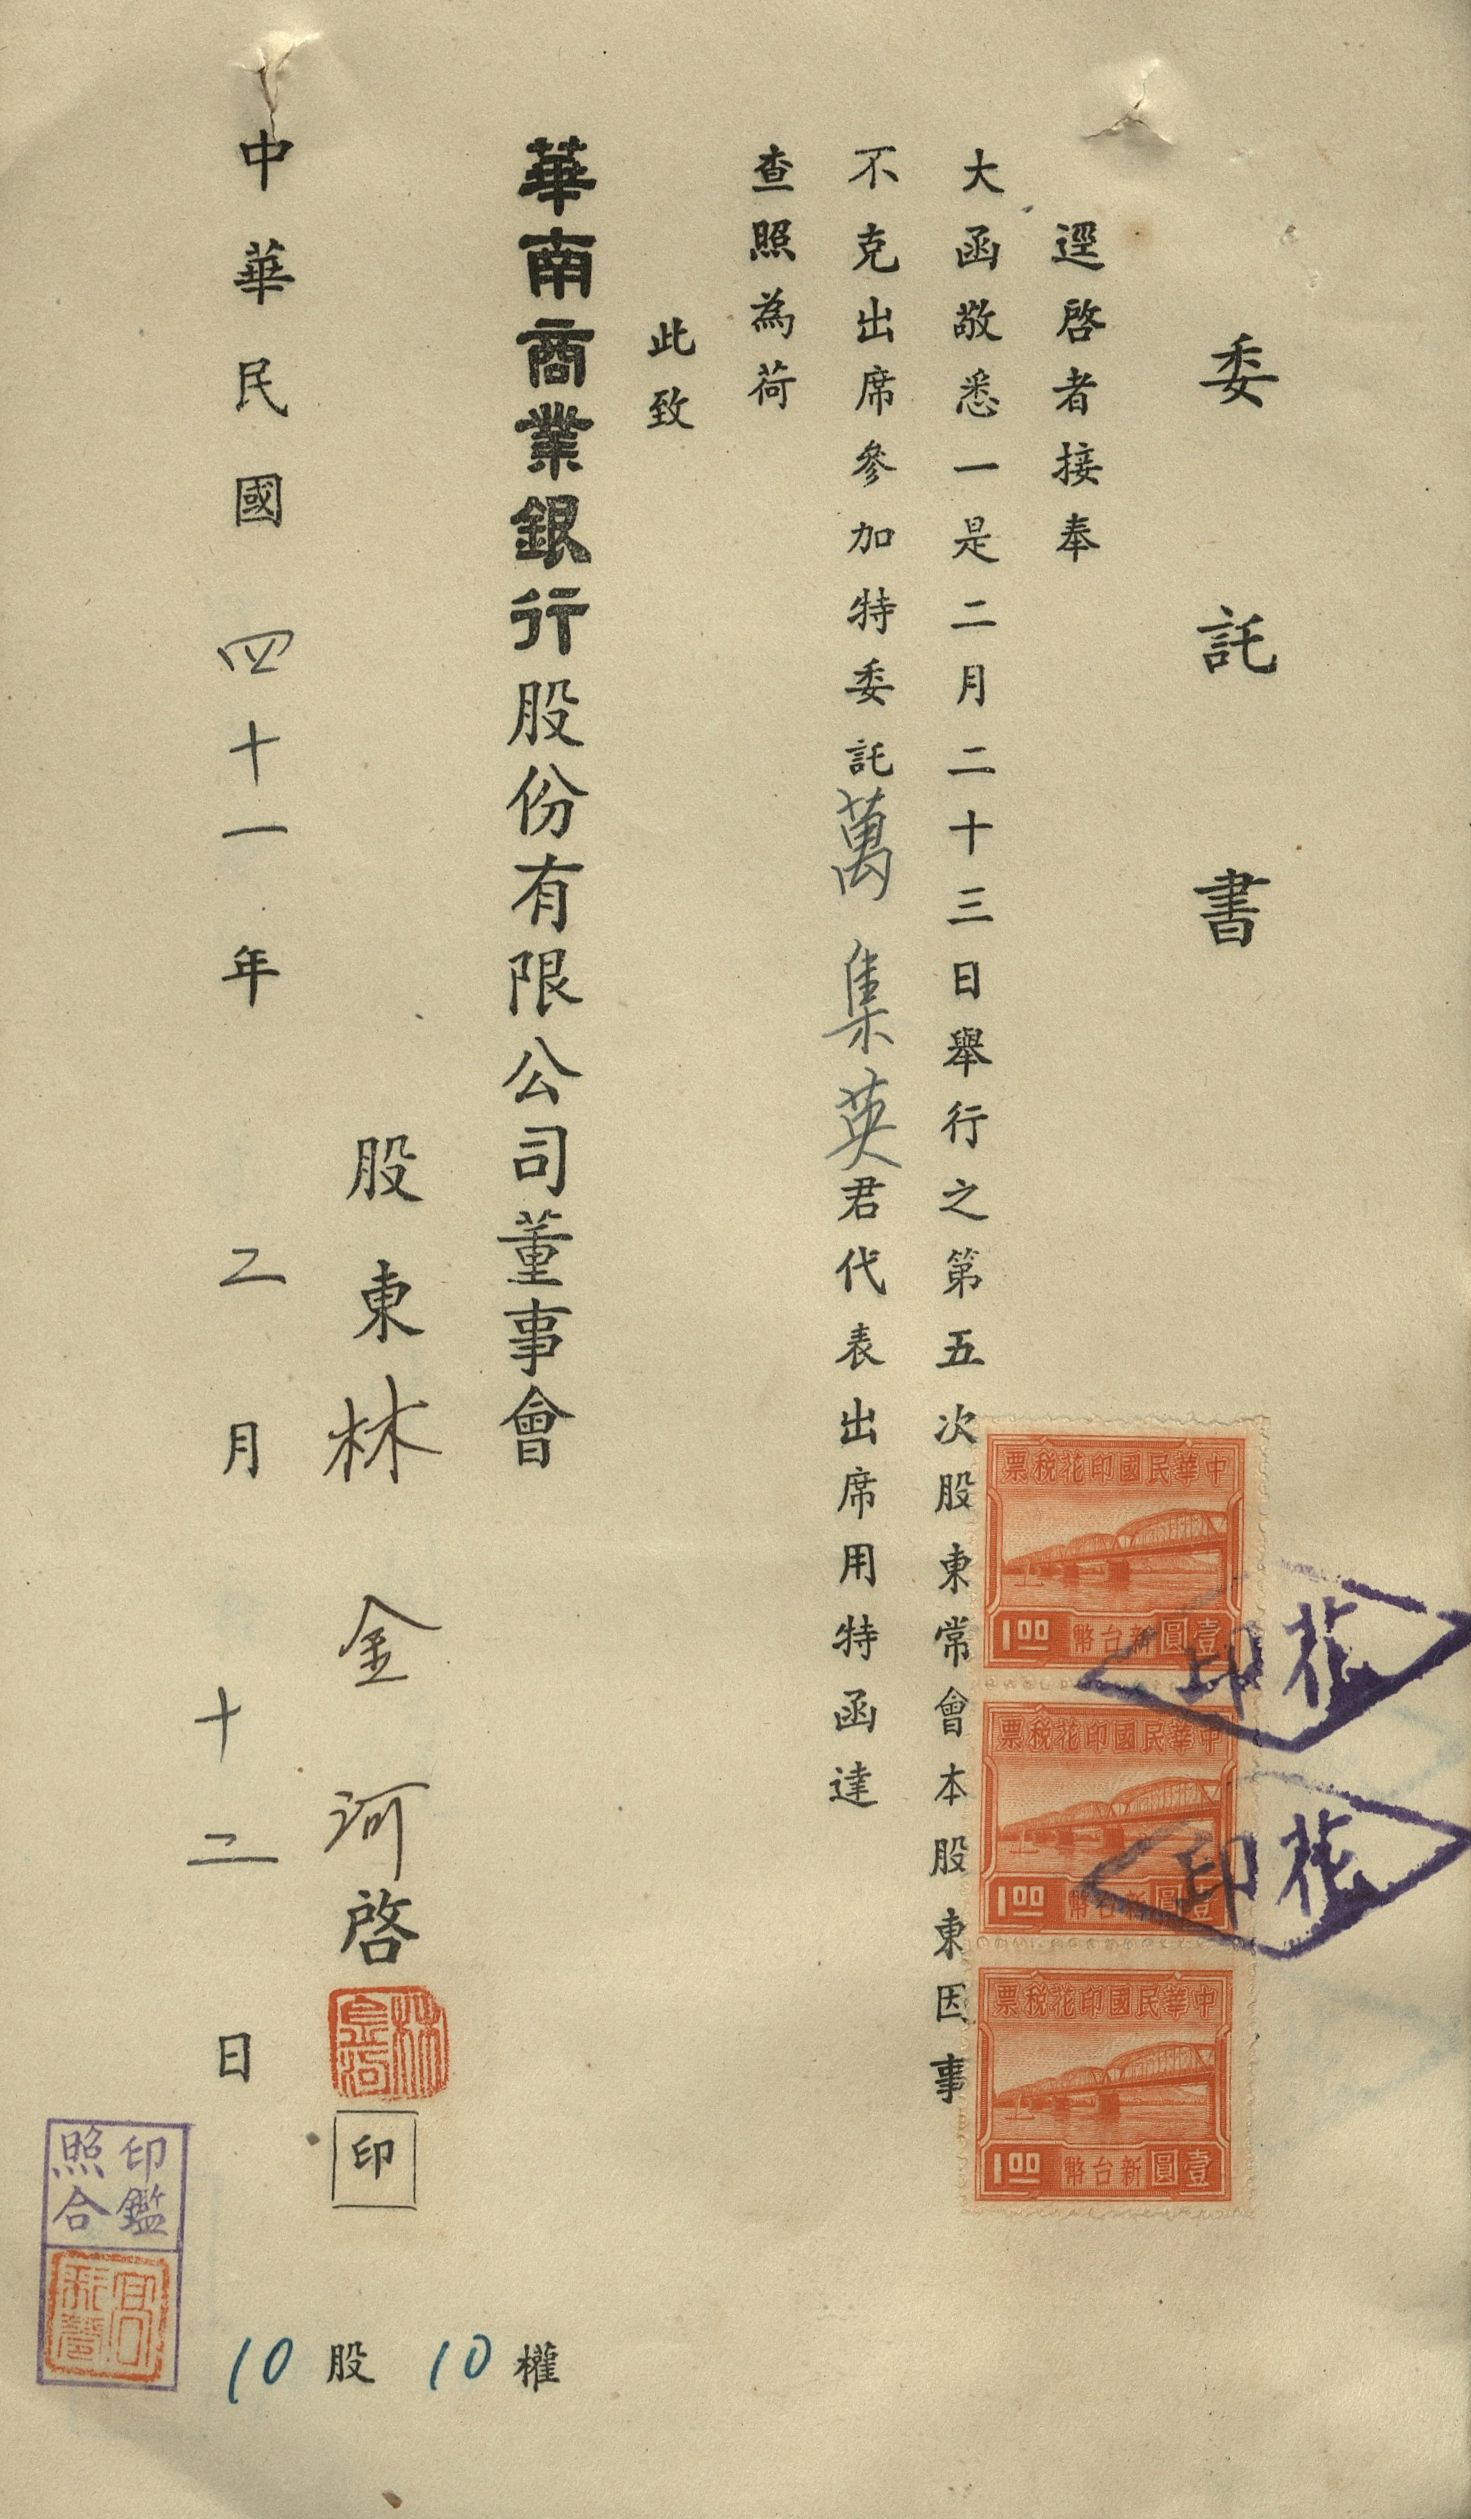 委託書
逕啓者接奉
大函敬悉一是二月二十三日舉行之第五次股東常會本股東因事
不克出席參加特委託萬集英君代表出席用特函達
查照為荷
此致
華南商業銀行股份有限公司董事會
股東林金河啓
林金河
印
中華民國四十一年二月十二日
10股 10權
印鑑
照合
中華民國印花税票
壹圓新台幣
1.00
中華民國印花税票
壹圓新台幣
1.00
中華民國印花税票
壹圓新台幣
1.00
印花
印花